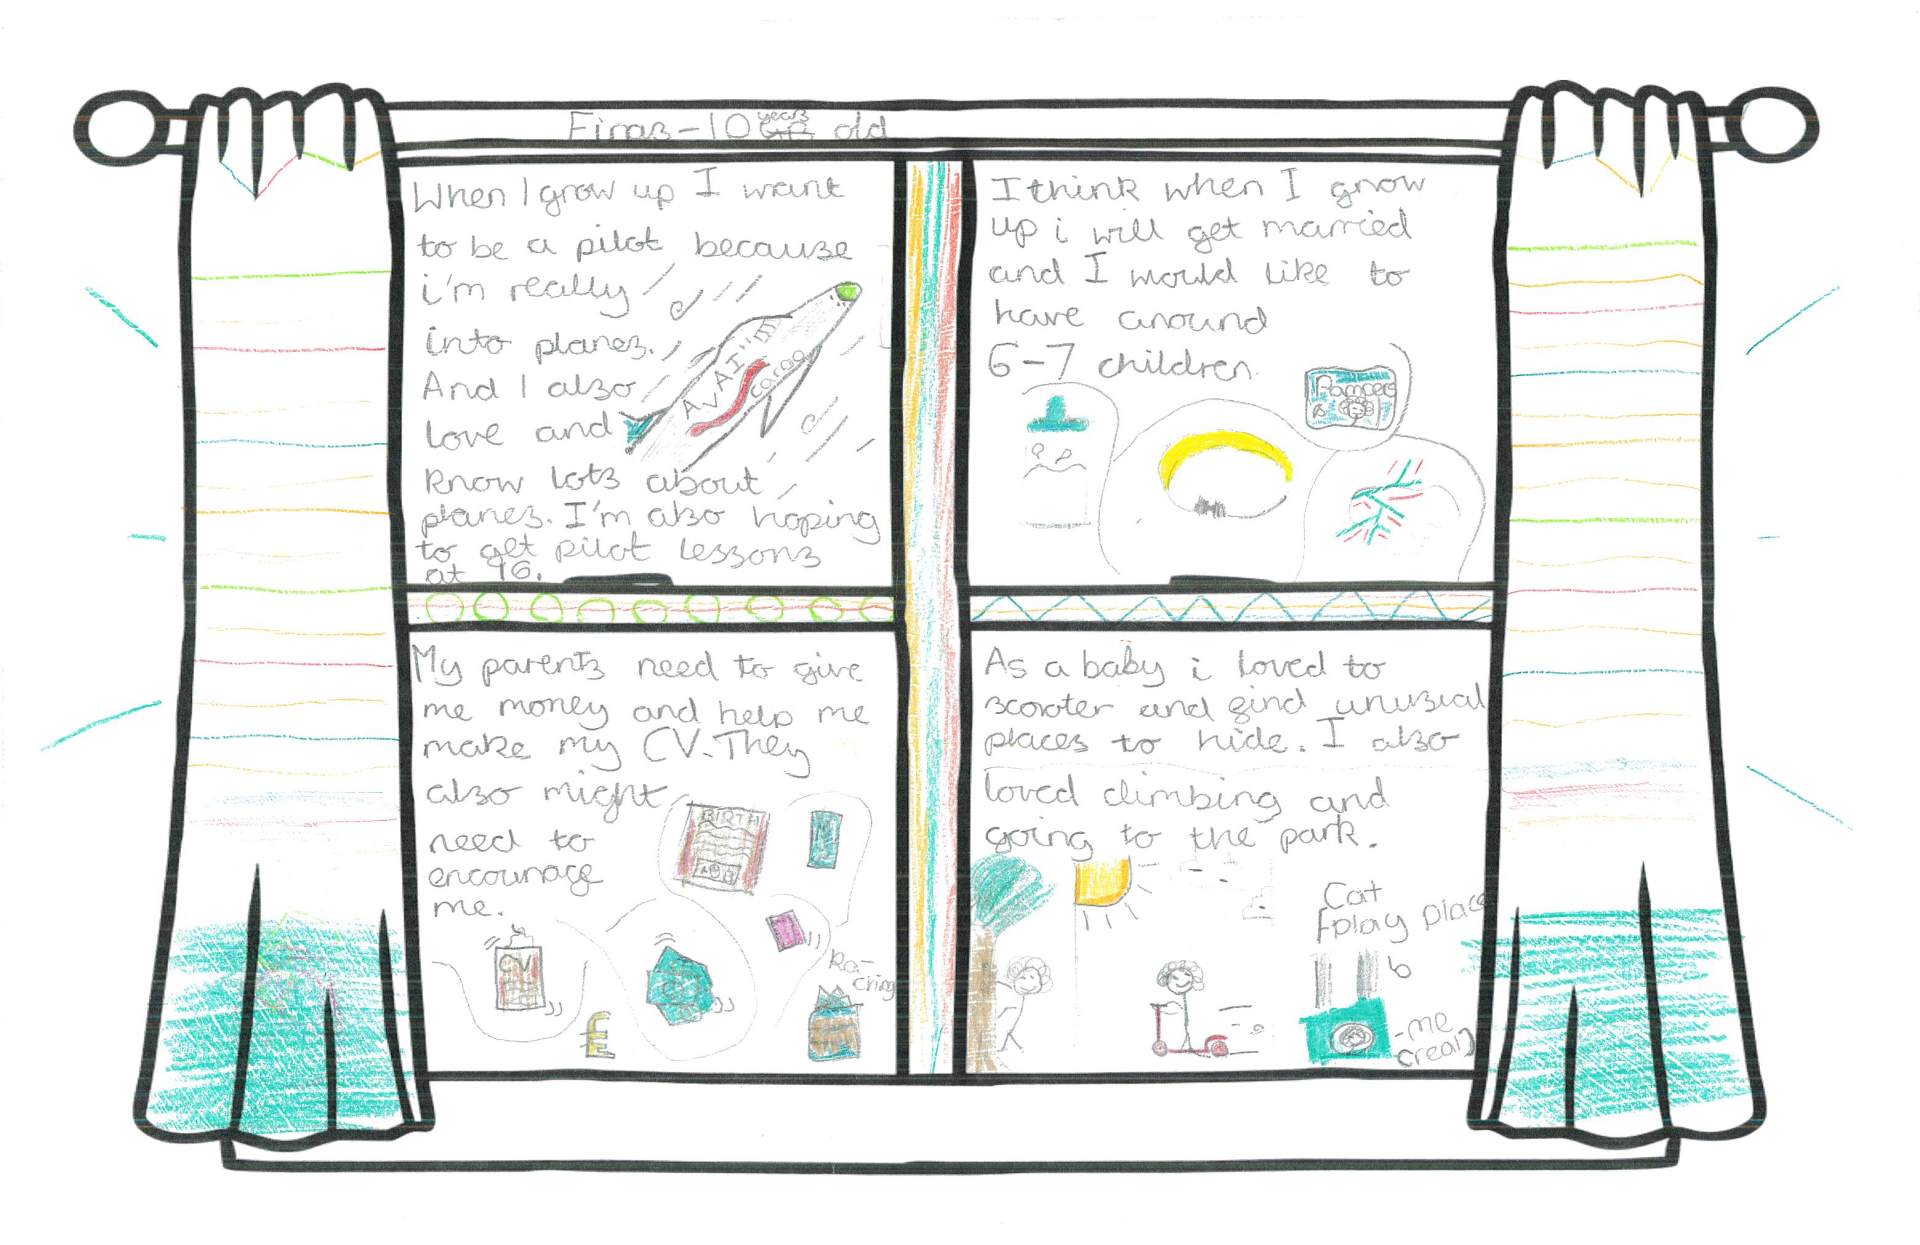 Firas-10 years old
When I grow up I want
to be a pilot because
i'm really
into planes.
And I also
love and
know lots about
planes. I'm also hoping
to get pilot lessons
at 16.
cargo
I think when I grow
up i will get married
and I would like to
have around
6-7 children.
Pampers
My parents need to give
me money and help me
make my CV. They
also might
need to
encourage
me.
BIRTH
CV
£
Ra-
cring
As a baby i loved to
scooter and find unusual
places to hide. I also
loved climbing and
going to the park.
Cat
play place
-me